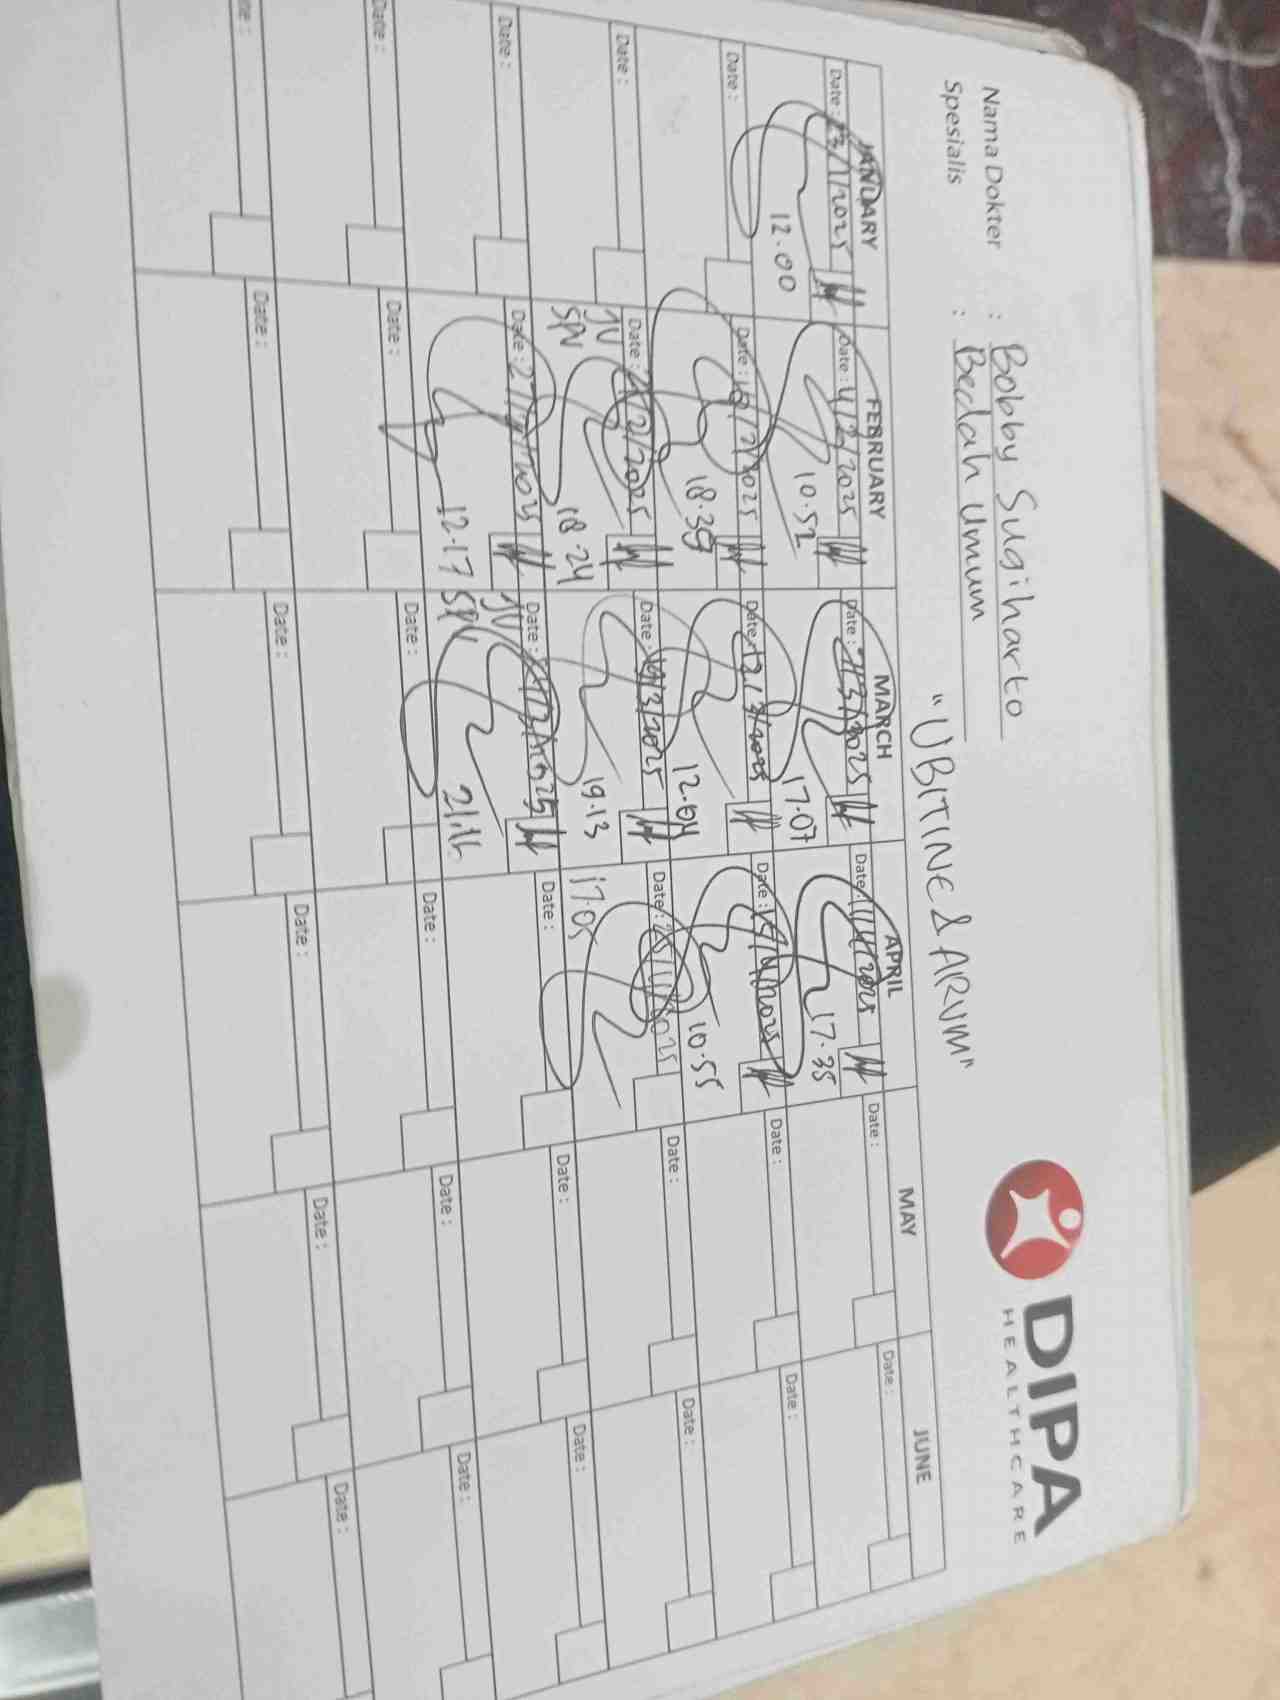 DIPA
HEALTHCARE
Nama Dokter : Bobby Sugiharto
Spesialis : Bedah Umum
"UBITINE & ARVM"
JANUARY FEBRUARY MARCH APRIL MAY JUNE
Date : 23/1/2025 Date : 4/2/2025 Date : Date : 11/4/2025 Date : Date :
12.00 10.52 17.07 17.35
Date : Date : Date : 12/3/2025 Date : Date : Date :
18.39 12.04 10.55
Date : Date : 21/2/2025 Date : 19/3/2025 Date : Date : Date :
JV
SPV 18.24 19.13 17.05
Date : Date : 27/2/2025 Date : Date : Date : Date :
12.17 JV
SPV
Date : Date : Date : Date : Date : Date :
Date : Date : Date : Date : Date : Date :